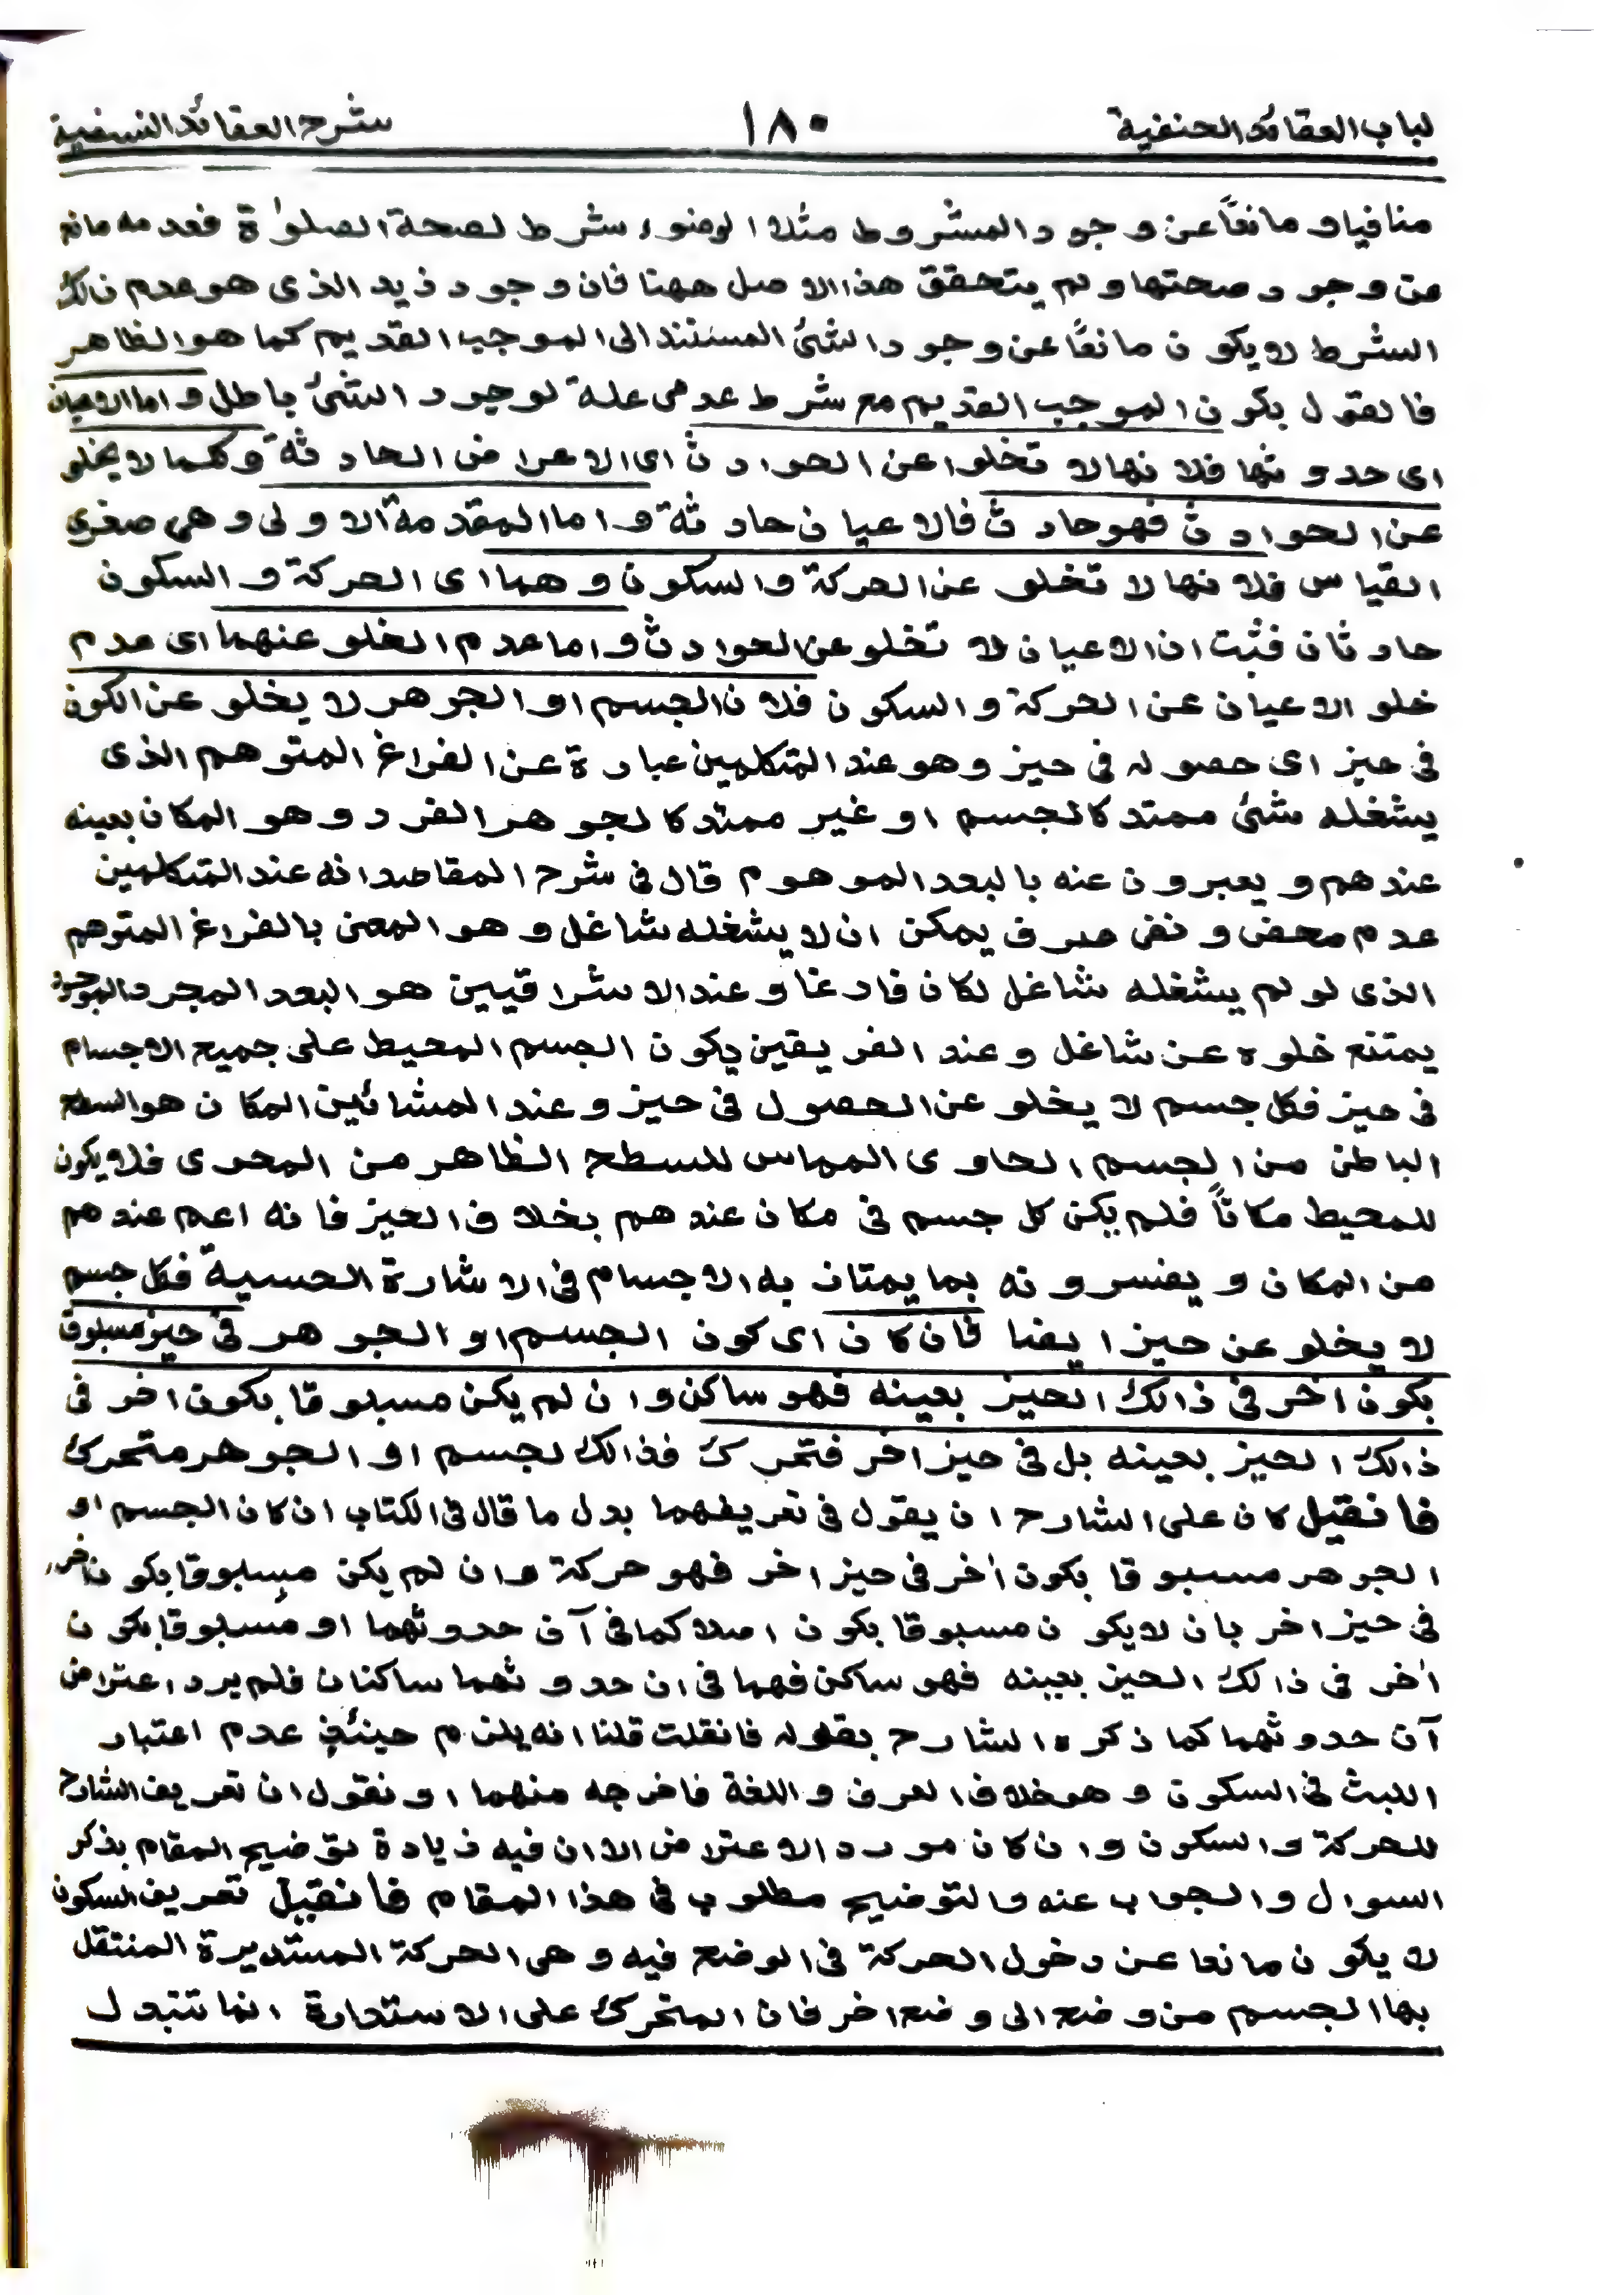 لباب العقائد الحنفية ١٨٠ شرح العقائد النسفية
منافيا و مانعاً عن وجود المشروط مثلا الوضوء شرط لصحة الصلوٰة فعدمه مانع
عن وجود صحتها و لم يتحقق هذا الاصل ههنا فان وجود زيد الذى هو عدم ذالك
الشرط لا يكون مانعاً عن وجود الشئ المستند الى الموجب القديم كما هو الظاهر
فالقول بكون الموجب القديم مع شرط عدمى علة لوجود الشئ باطل و اما الاعيان
اى حدوثها فلانها لا تخلوا عن الحوادث اى الاعراض الحادثة وكلما لا يخلو
عن الحوادث فهو حادث فالاعيان حادثة و اما المقدمة الاولى و هى صغرى
القياس فلانها لا تخلو عن الحركة و السكون و هما اى الحركة و السكون
حادثان فثبت ان الاعيان لا تخلو عن الحوادث و اما عدم الخلو عنهما اى عدم
خلو الاعيان عن الحركة و السكون فلان الجسم او الجوهر لا يخلو عن الكون
فى حيز اى حصوله فى حيز و هو عند المتكلمين عبارة عن الفراغ المتوهم الذى
يشغله شئ ممتد كالجسم او غير ممتد كالجوهر الفرد و هو المكان بعينه
عندهم و يعبرون عنه بالبعد الموهوم قال فى شرح المقاصد انه عند المتكلمين
عدم محض و نفى صرف يمكن ان لا يشغله شاغل و هو المعنى بالفراغ المتوهم
الذى لو لم يشغله شاغل لكان فارغا و عند الاشراقيين هو البعد المجرد الموجود
يمتنع خلوه عن شاغل و عند الفريقين يكون الجسم المحيط على جميع الاجسام
فى حيز فكل جسم لا يخلو عن الحصول فى حيز و عند المشائين المكان هو السطح
الباطن من الجسم الحاوى المماس للسطح الظاهر من المحوى فلا يكون
للمحيط مكاناً فلم يكن كل جسم فى مكان عندهم بخلاف الحيز فانه اعم عندهم
من المكان و يفسرونه بما يمتاز به الاجسام فى الاشارة الحسية فكل جسم
لا يخلو عن حيز ايضا فان كان اى كون الجسم او الجوهر فى حيز مسبوق
بكون اخر فى ذالك الحيز بعينه فهو ساكن و ان لم يكن مسبوقا بكون اخر فى
ذالك الحيز بعينه بل فى حيز اخر فتحرك فذالك لجسم او الجوهر متحرك
فانقيل كان على الشارح ان يقول فى تعريفهما بدل ما قال فى الكتاب ان كان الجسم او
الجوهر مسبوقا بكون اٰخر فى حيز اخر فهو حركة و ان لم يكن مسبوقا بكون اخر
فى حيز اخر بان لا يكون مسبوقا بكون اصلا كما فى آن حدوثهما او مسبوقا بكون
اٰخر فى ذالك الحيز بعينه فهو ساكن فهما فى ان حدوثهما ساكنان فلم يرد اعتراض
آن حدوثهما كما ذكره الشارح بقوله فانقلت قلنا انه يلزم حينئذ عدم اعتبار
اللبث فى السكون و هو خلاف العرف و اللغة فاخرجه منهما او نقول ان تعريف الشارح
للحركة و السكون و ان كان مورد الاعتراض الا ان فيه زيادة توضيح المقام بذكر
السوال و الجواب عنه و التوضيح مطلوب فى هذا المقام فانقيل تعريف السكون
لا يكون مانعا عن دخول الحركة فى الوضع فيه و هى الحركة المستديرة المنتقل
بها الجسم من وضع الى وضع اخر فان المتحرك على الاستدارة انما تتبدل